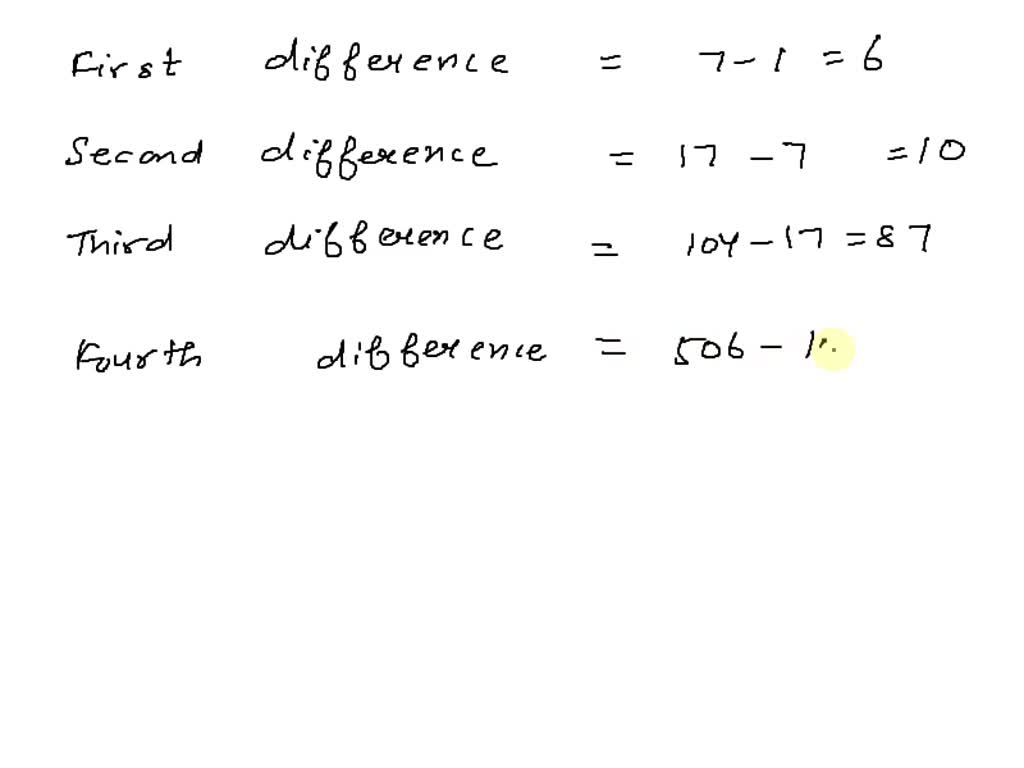 First difference = 7 - 1 = 6
Second difference = 17 - 7 = 10
Third difference = 104 - 17 = 87
Fourth difference = 506 - 1